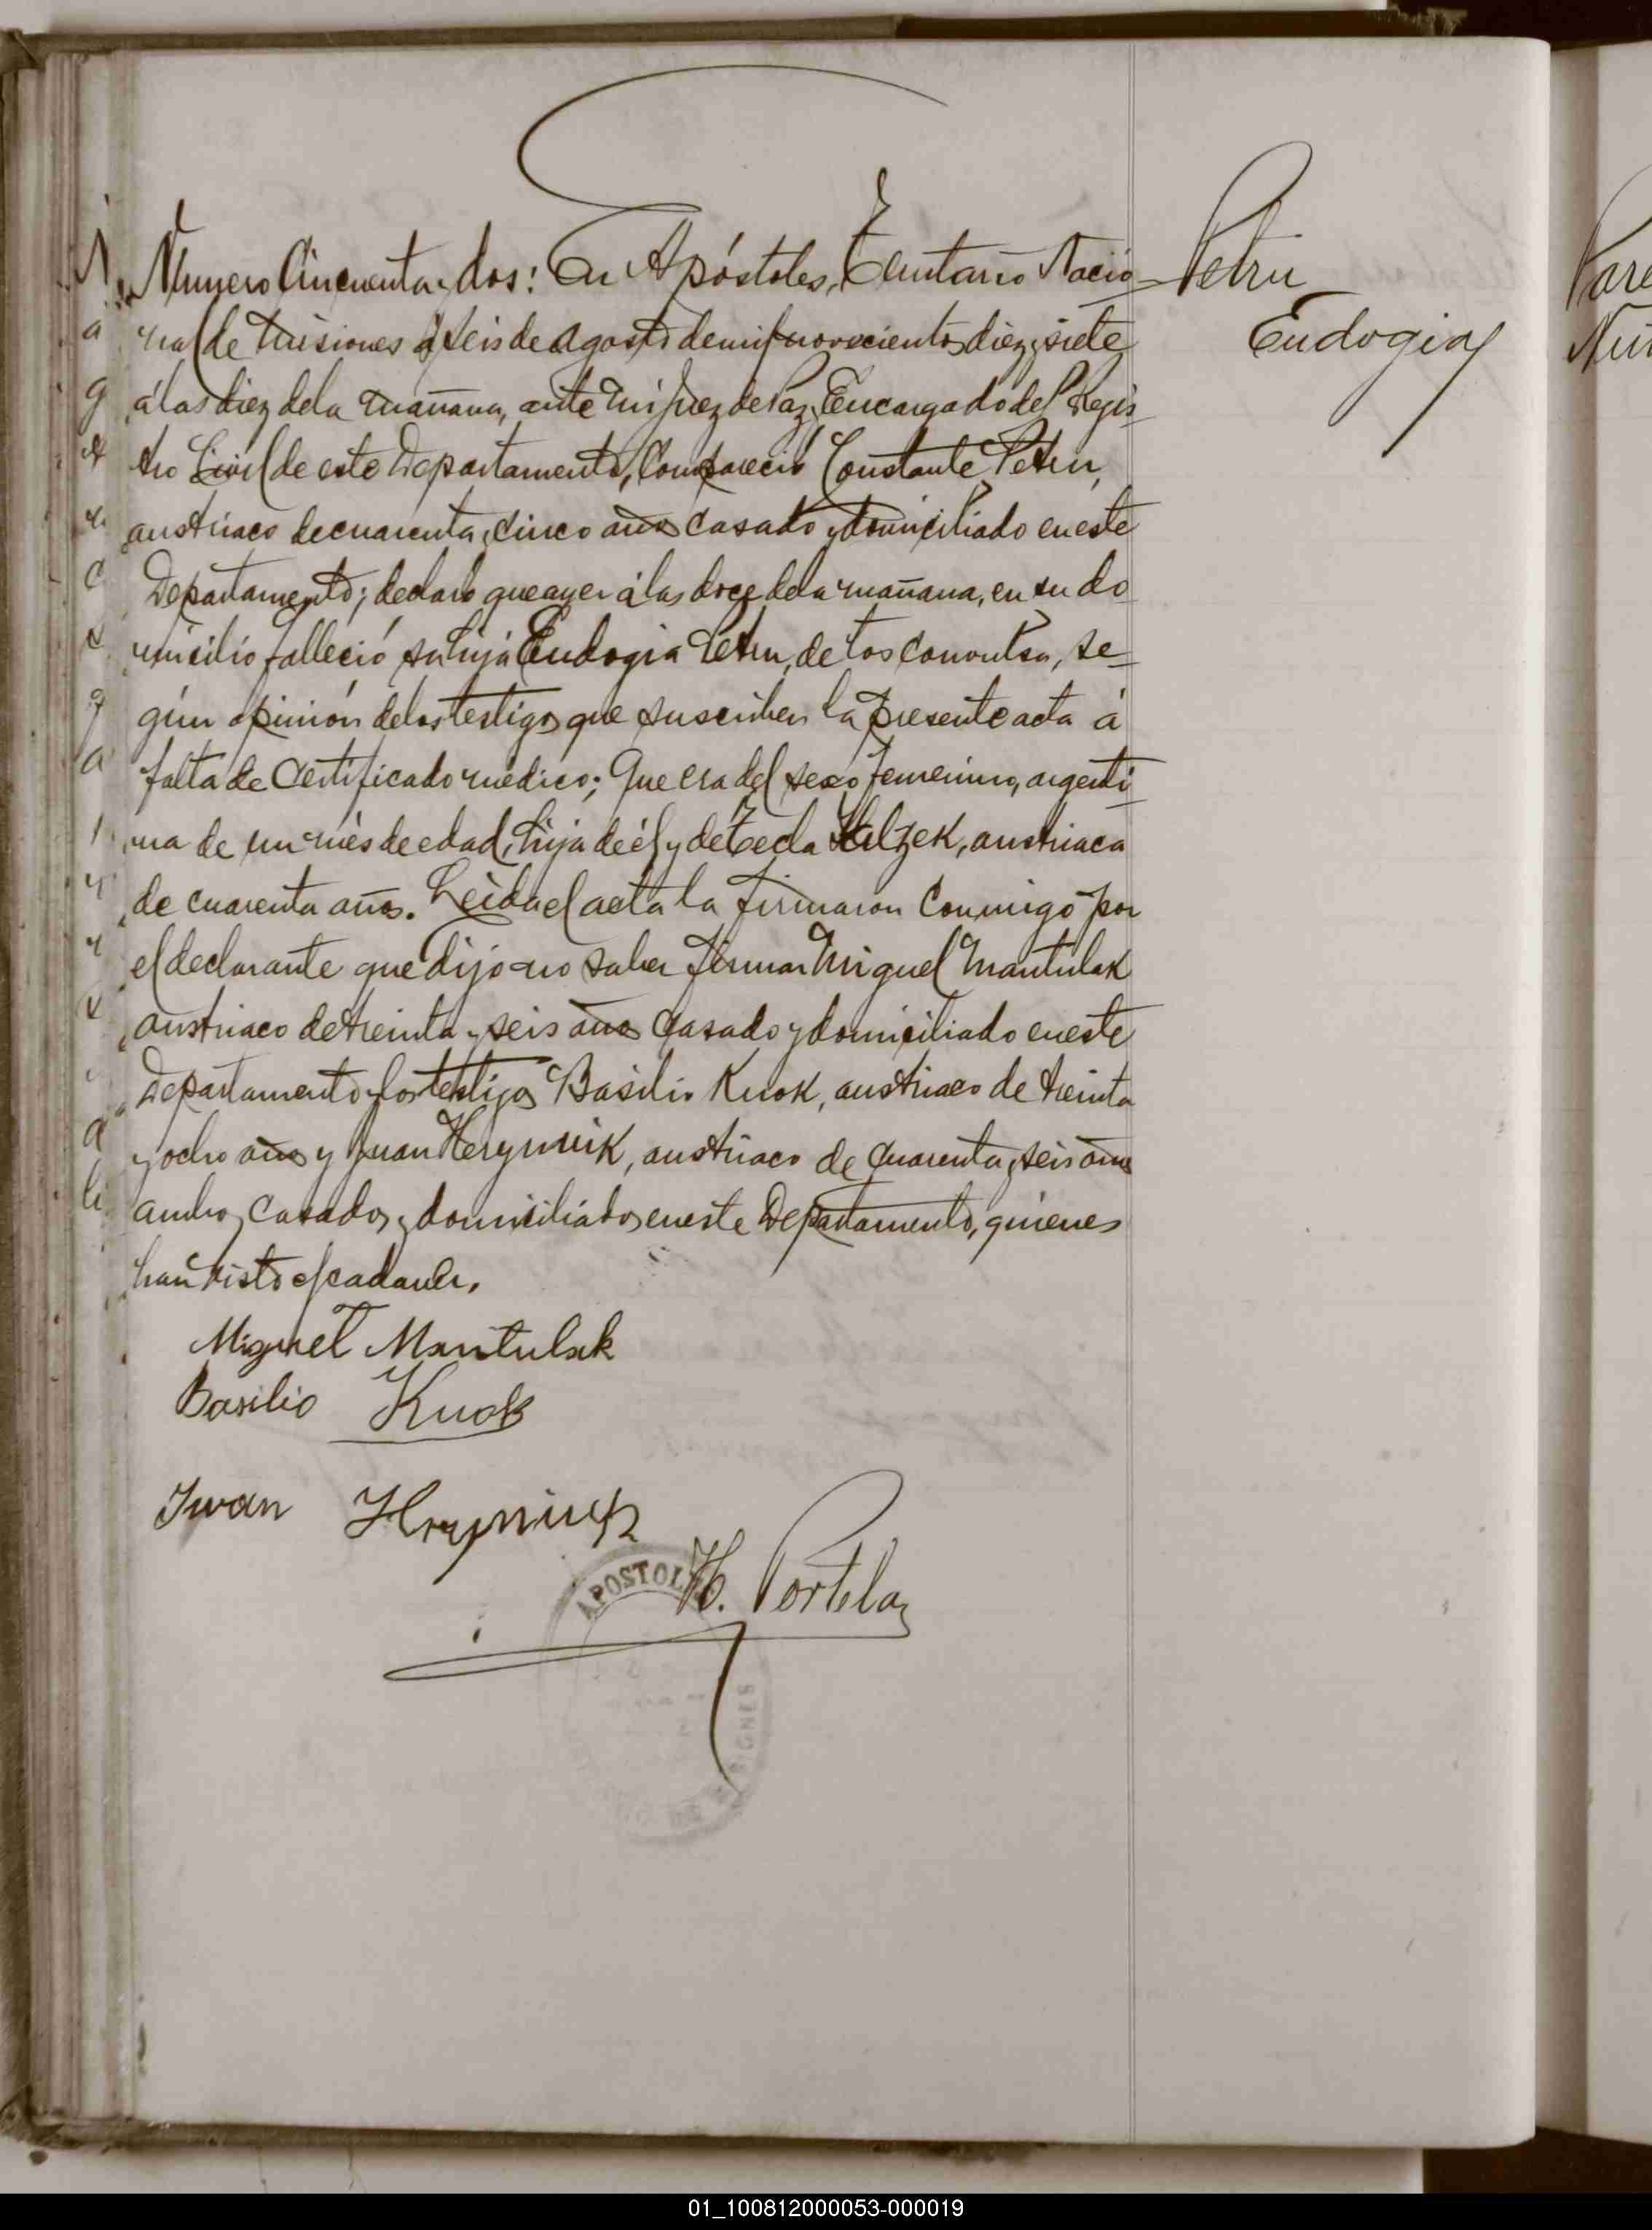 Número Cincuenta y dos: En Apóstoles, Territorio Nacio-
nal de Misiones á seis de Agosto de mil novecientos diez y siete
á las diez de la mañana, ante mi Juez de Paz, Encargado del Regis-
tro Civil de este Departamento, Compareció Constante Petru,
austriaco de cuarenta y cinco años casado y domiciliado en este
Departamento; declaró que ayer á las doce de la mañana, en su do
micilio falleció su hija Eudogia Petru, de tos convulsa, se-
gún opinión de los testigos que suscriben la presente acta á
falta de Certificado médico; Que era del sexo femenino, argenti-
na de un més de edad, hija de él y de Tecla Kelzek, austriaca
de cuarenta años. Leida el acta la firmaron Conmigo por
el declarante que dijo no saber firmar Miguel Mantulak
austriaco de treinta y seis años casado y domiciliado en este
Departamento y los testigos Basilio Kuok, austriaco de treinta
y ocho años y Juan Hergmuik, austriaco de cuarenta y seis años
ambos casados y domiciliados en este Departamento, quienes
han visto el cadaver.
Miguel Mantulak
Basilio Kuok
Iwan Hryniuk
H. Portela
APOSTOLES
DE MISIONES
Petru
Eudogia
01_100812000053-000019